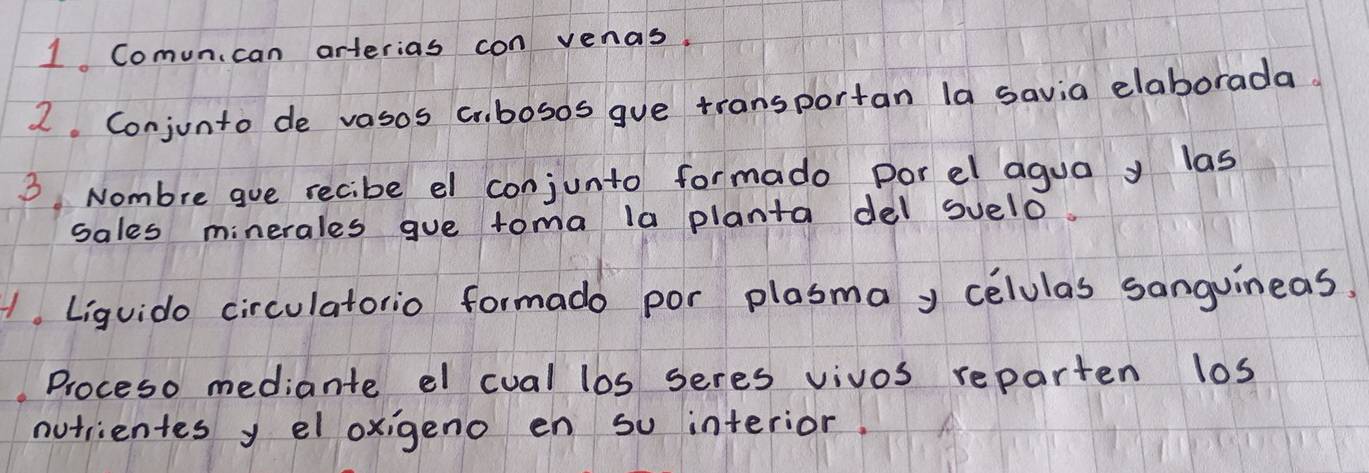 1. Comunican arterias con venas.
2. Conjunto de vasos cribosos que transportan la savia elaborada.
3. Nombre que recibe el conjunto formado por el agua y las
sales minerales que toma la planta del suelo.
4. Líquido circulatorio formado por plasma y células sanguíneas.
. Proceso mediante el cual los seres vivos reparten los
nutrientes y el oxígeno en su interior.